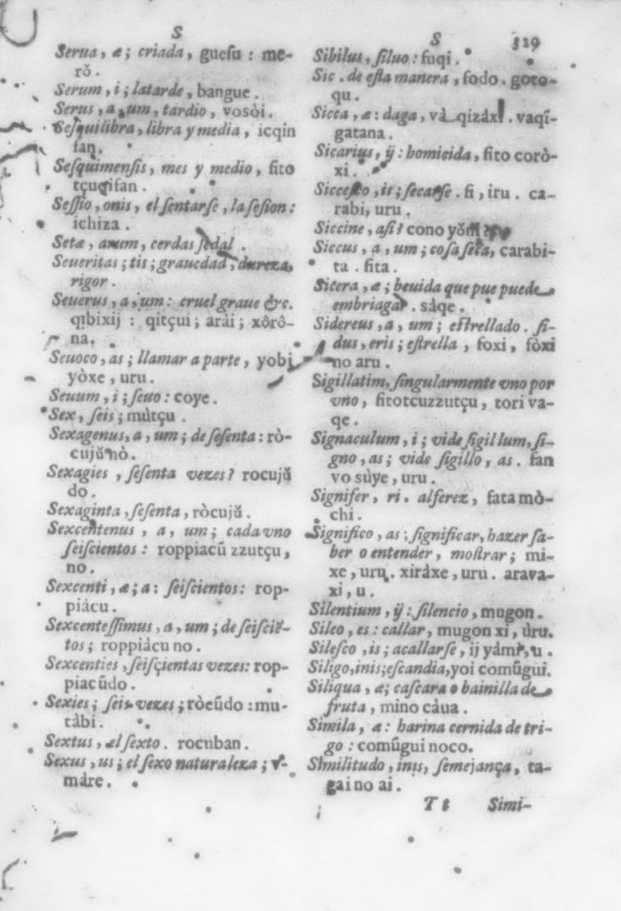 S
Serua, æ; criada, guesu: me-
rǒ.
Serum, i; latarde, bangue.
Serus, a, um, tardio, vosòi.
Sesquilibra, libra y media, icqin
san.
Sesquimensis, mes y medio, fito
tçuqisan.
Sessio, onis, el sentarse, la sesion:
ichiza.
Setæ, arum, cerdas sedal.
Seueritas; tis; grauedad, dureza,
rigor.
Seuerus, a, um: cruel graue &c.
qibixij: qitçui; arài; xôrô-
na.
Seuoco, as; llamar a parte, yobi
yòxe, uru.
Seuum, i; seuo: coye.
Sex, seis; mùtçu.
Sexagenus, a, um; de sesenta: rò-
cujǔ nò.
Sexagies, sesenta vezes? rocujǔ
do.
Sexaginta, sesenta, ròcujǔ.
Sexcentenus, a, um; cada vno
seiscientos: roppiacũ zzutçu,
no.
Sexcenti, æ; a: seiscientos: rop-
piàcu.
Sexcentessimus, a, um; de seisciẽ-
tos; roppiàcu no.
Sexcenties, seisçientas vezes: rop-
piacũdo.
Sexies; seis vezes; ròcũdo: mu-
tàbi.
Sextus, el sexto. rocuban.
Sexus, us; el sexo naturaleza; v-
màre.
S 319
Sibilus, siluo: fuqi.
Sic. de esta manera, sodo. goto-
qu.
Sicca, æ: daga, và qizàxi. vaqī-
gatana.
Sicarius, ÿ: homicida, fito corò-
xi.
Siccesto, is; secarse. fi, iru. ca-
rabi, uru.
Siccine, asi? cono yǒni?
Siccus, a, um; cosa seca, carabi-
ta. fita.
Sicera, æ; beuida que pue puede
embriagar. sàqe.
Sidereus, a, um; estrellado. si-
dus, eris; estrella, foxi, fòxi
no aru.
Sigillatim, singularmente vno por
vno, fitotcuzzutçu, tori va-
qe.
Signaculum, i; vide sigillum, si-
gno, as; vide sigillo, as. fan
vo sùye, uru.
Signifer, ri. alferez, fata mò-
chi.
Significo, as: significar, hazer sa-
ber o entender, mostrar; mi-
xe, uru. xiràxe, uru. arava-
xi, u.
Silentium, ÿ: silencio, mugon.
Sileo, es: callar, mugon xi, ùru.
Silesco, is; acallarse, ij yàmi, u.
Siligo, inis; escandia, yoi comũgui.
Siliqua, æ; cascara o bainilla de
fruta, mino càua.
Simila, æ: harina cernida de tri-
go: comũgui noco.
Similitudo, inis, semejança, ta-
gai no ai.
T t Simi-